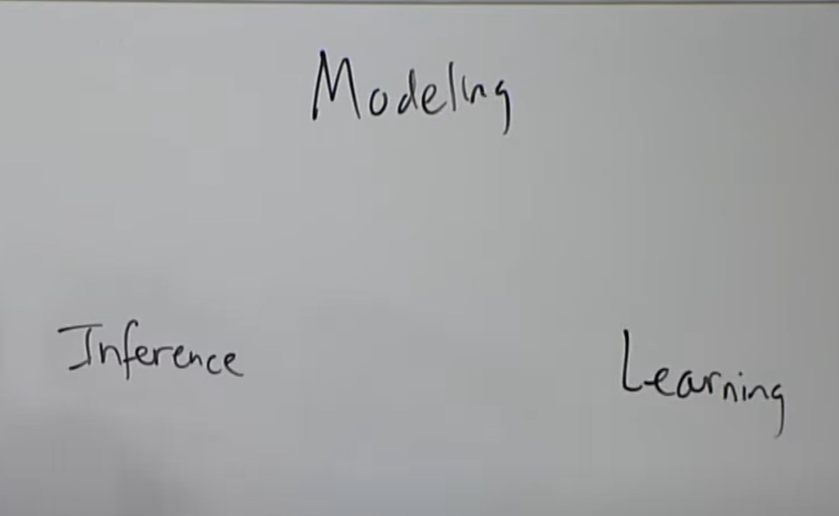 Modeling
Inference
Learning